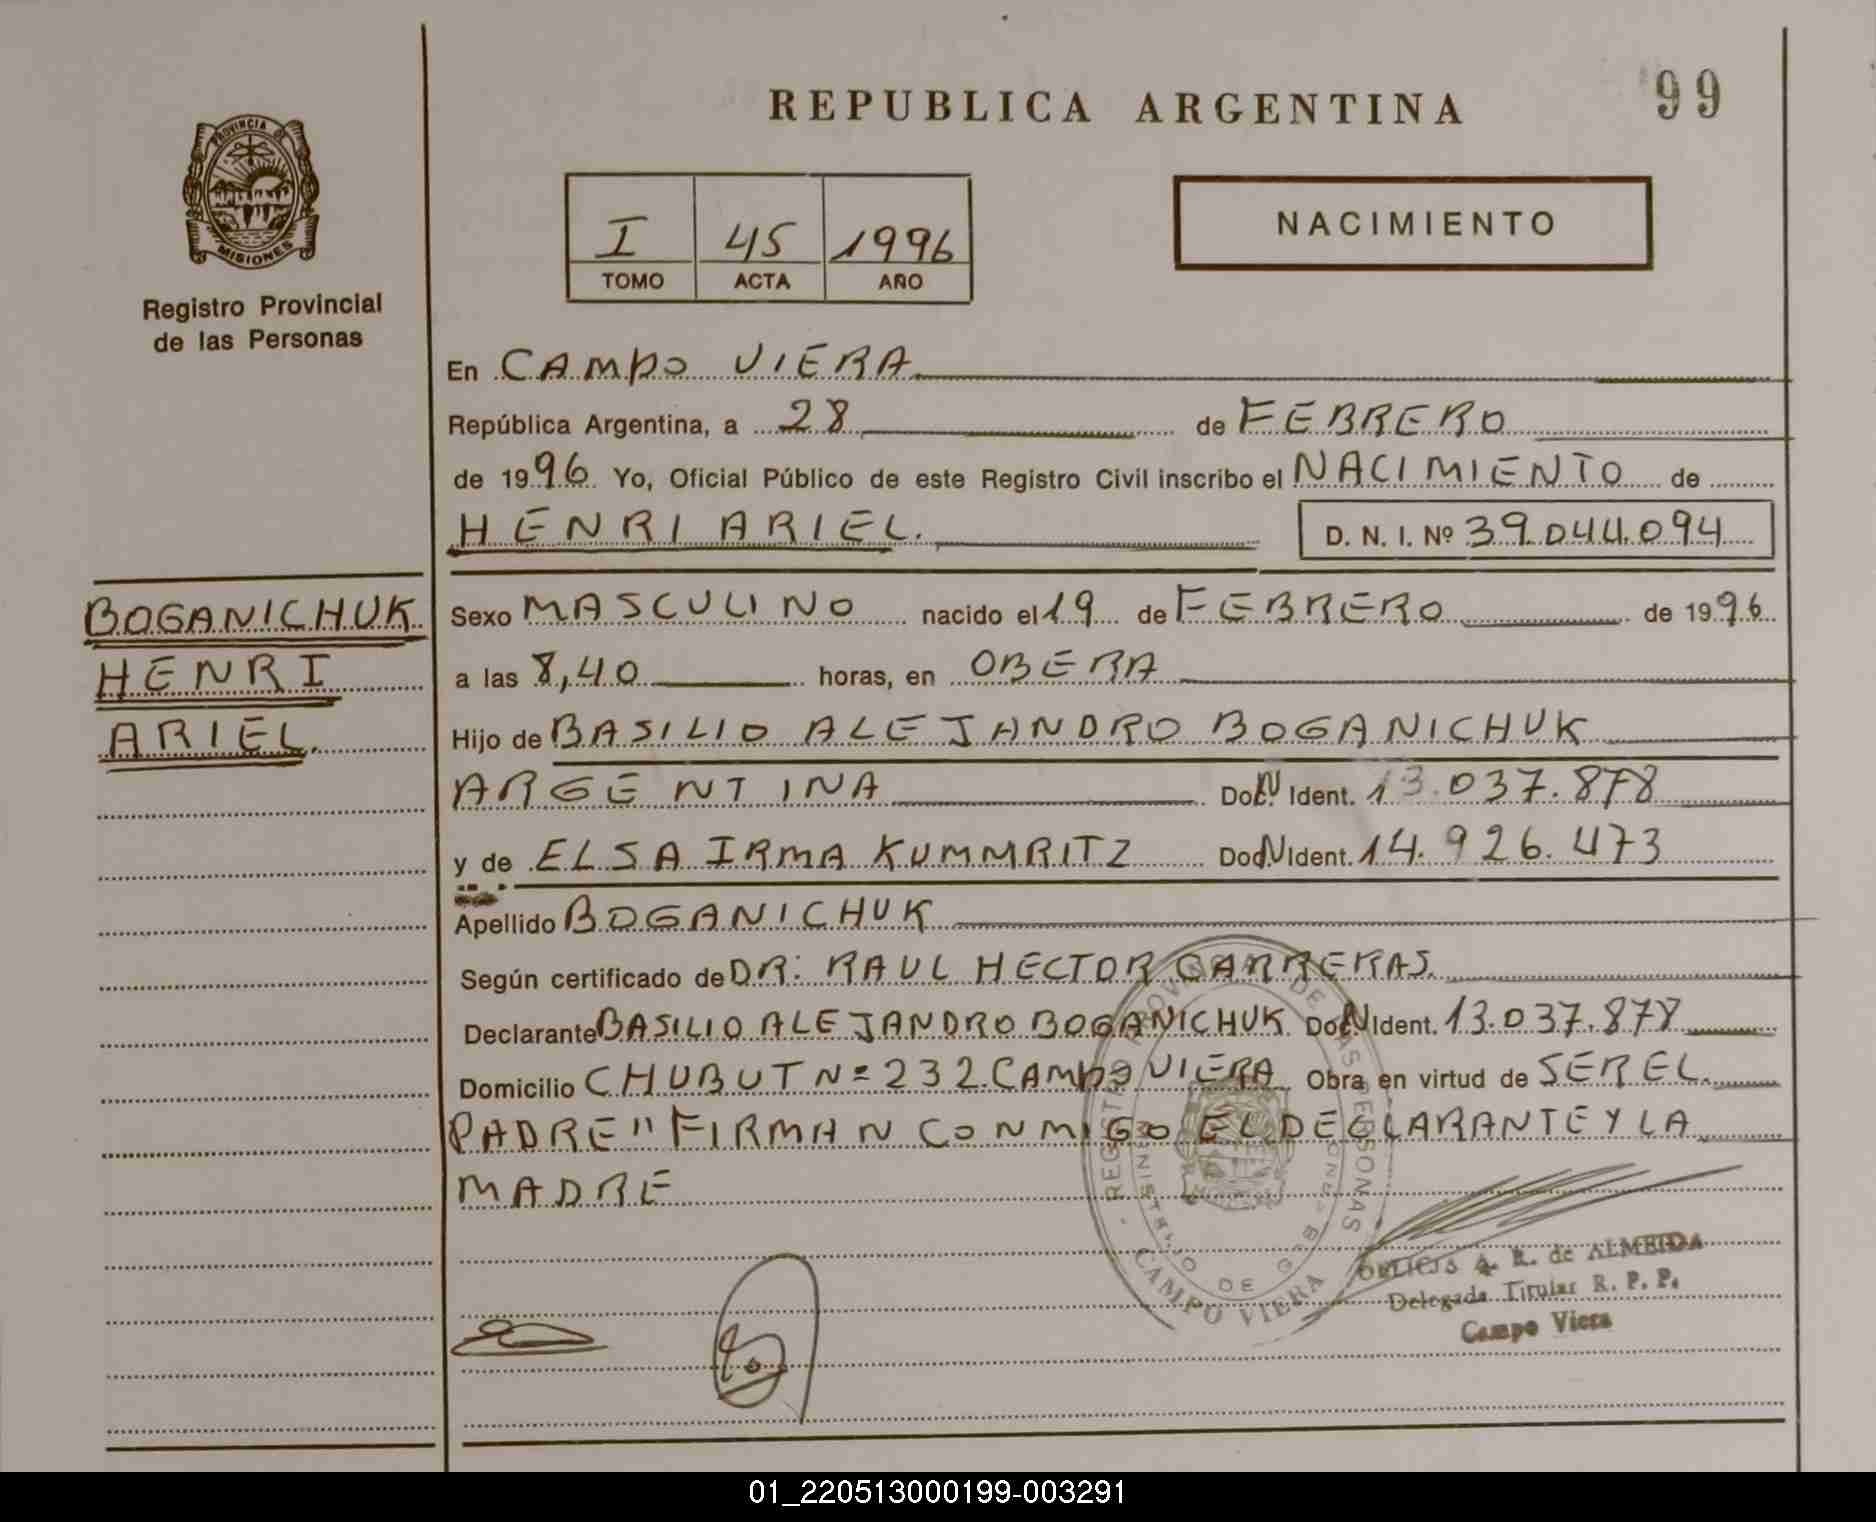 REPUBLICA ARGENTINA
99
PROVINCIA DE
MISIONES
Registro Provincial
de las Personas
I 45 1996
TOMO ACTA AÑO
NACIMIENTO
En CAMPO VIERA
República Argentina, a 28 de FEBRERO
de 1996 Yo, Oficial Público de este Registro Civil inscribo el NACIMIENTO de
HENRI ARIEL. D. N. I. Nº 39.044.094
BOGANICHUK
HENRI
ARIEL.
Sexo MASCULINO nacido el 19 de FEBRERO de 1996
a las 8,40 horas, en OBERA
Hijo de BASILIO ALEJANDRO BOGANICHUK
ARGENTINA Doc. Ident. 13.037.878
y de ELSA IRMA KUMMRITZ Doc. Ident. 14.926.473
Apellido BOGANICHUK
Según certificado de DR: RAUL HECTOR CARRERAS.
Declarante BASILIO ALEJANDRO BOGANICHUK Doc. Ident. 13.037.878
Domicilio CHUBUT Nº 232. CAMPO VIERA Obra en virtud de SER EL.
PADRE" FIRMAN CONMIGO EL DECLARANTE Y LA
MADRE
REGISTRO PROVINCIAL DE LAS PERSONAS
MINISTERIO DE
CAMPO VIERA
A. R. de ALMEIDA
Delegada Titular R. P. P.
Campo Viera
01_220513000199-003291